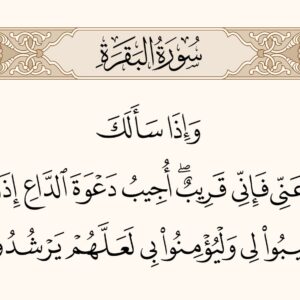 سُورَةُ البَقَرَةِ
وَإِذَا سَأَلَكَ
عَنِّي فَإِنِّي قَرِيبٌ ۖ أُجِيبُ دَعْوَةَ ٱلدَّاعِ إِذَ
يبُوا۟ لِي وَلْيُؤْمِنُوا۟ بِي لَعَلَّهُمْ يَرْشُدُو